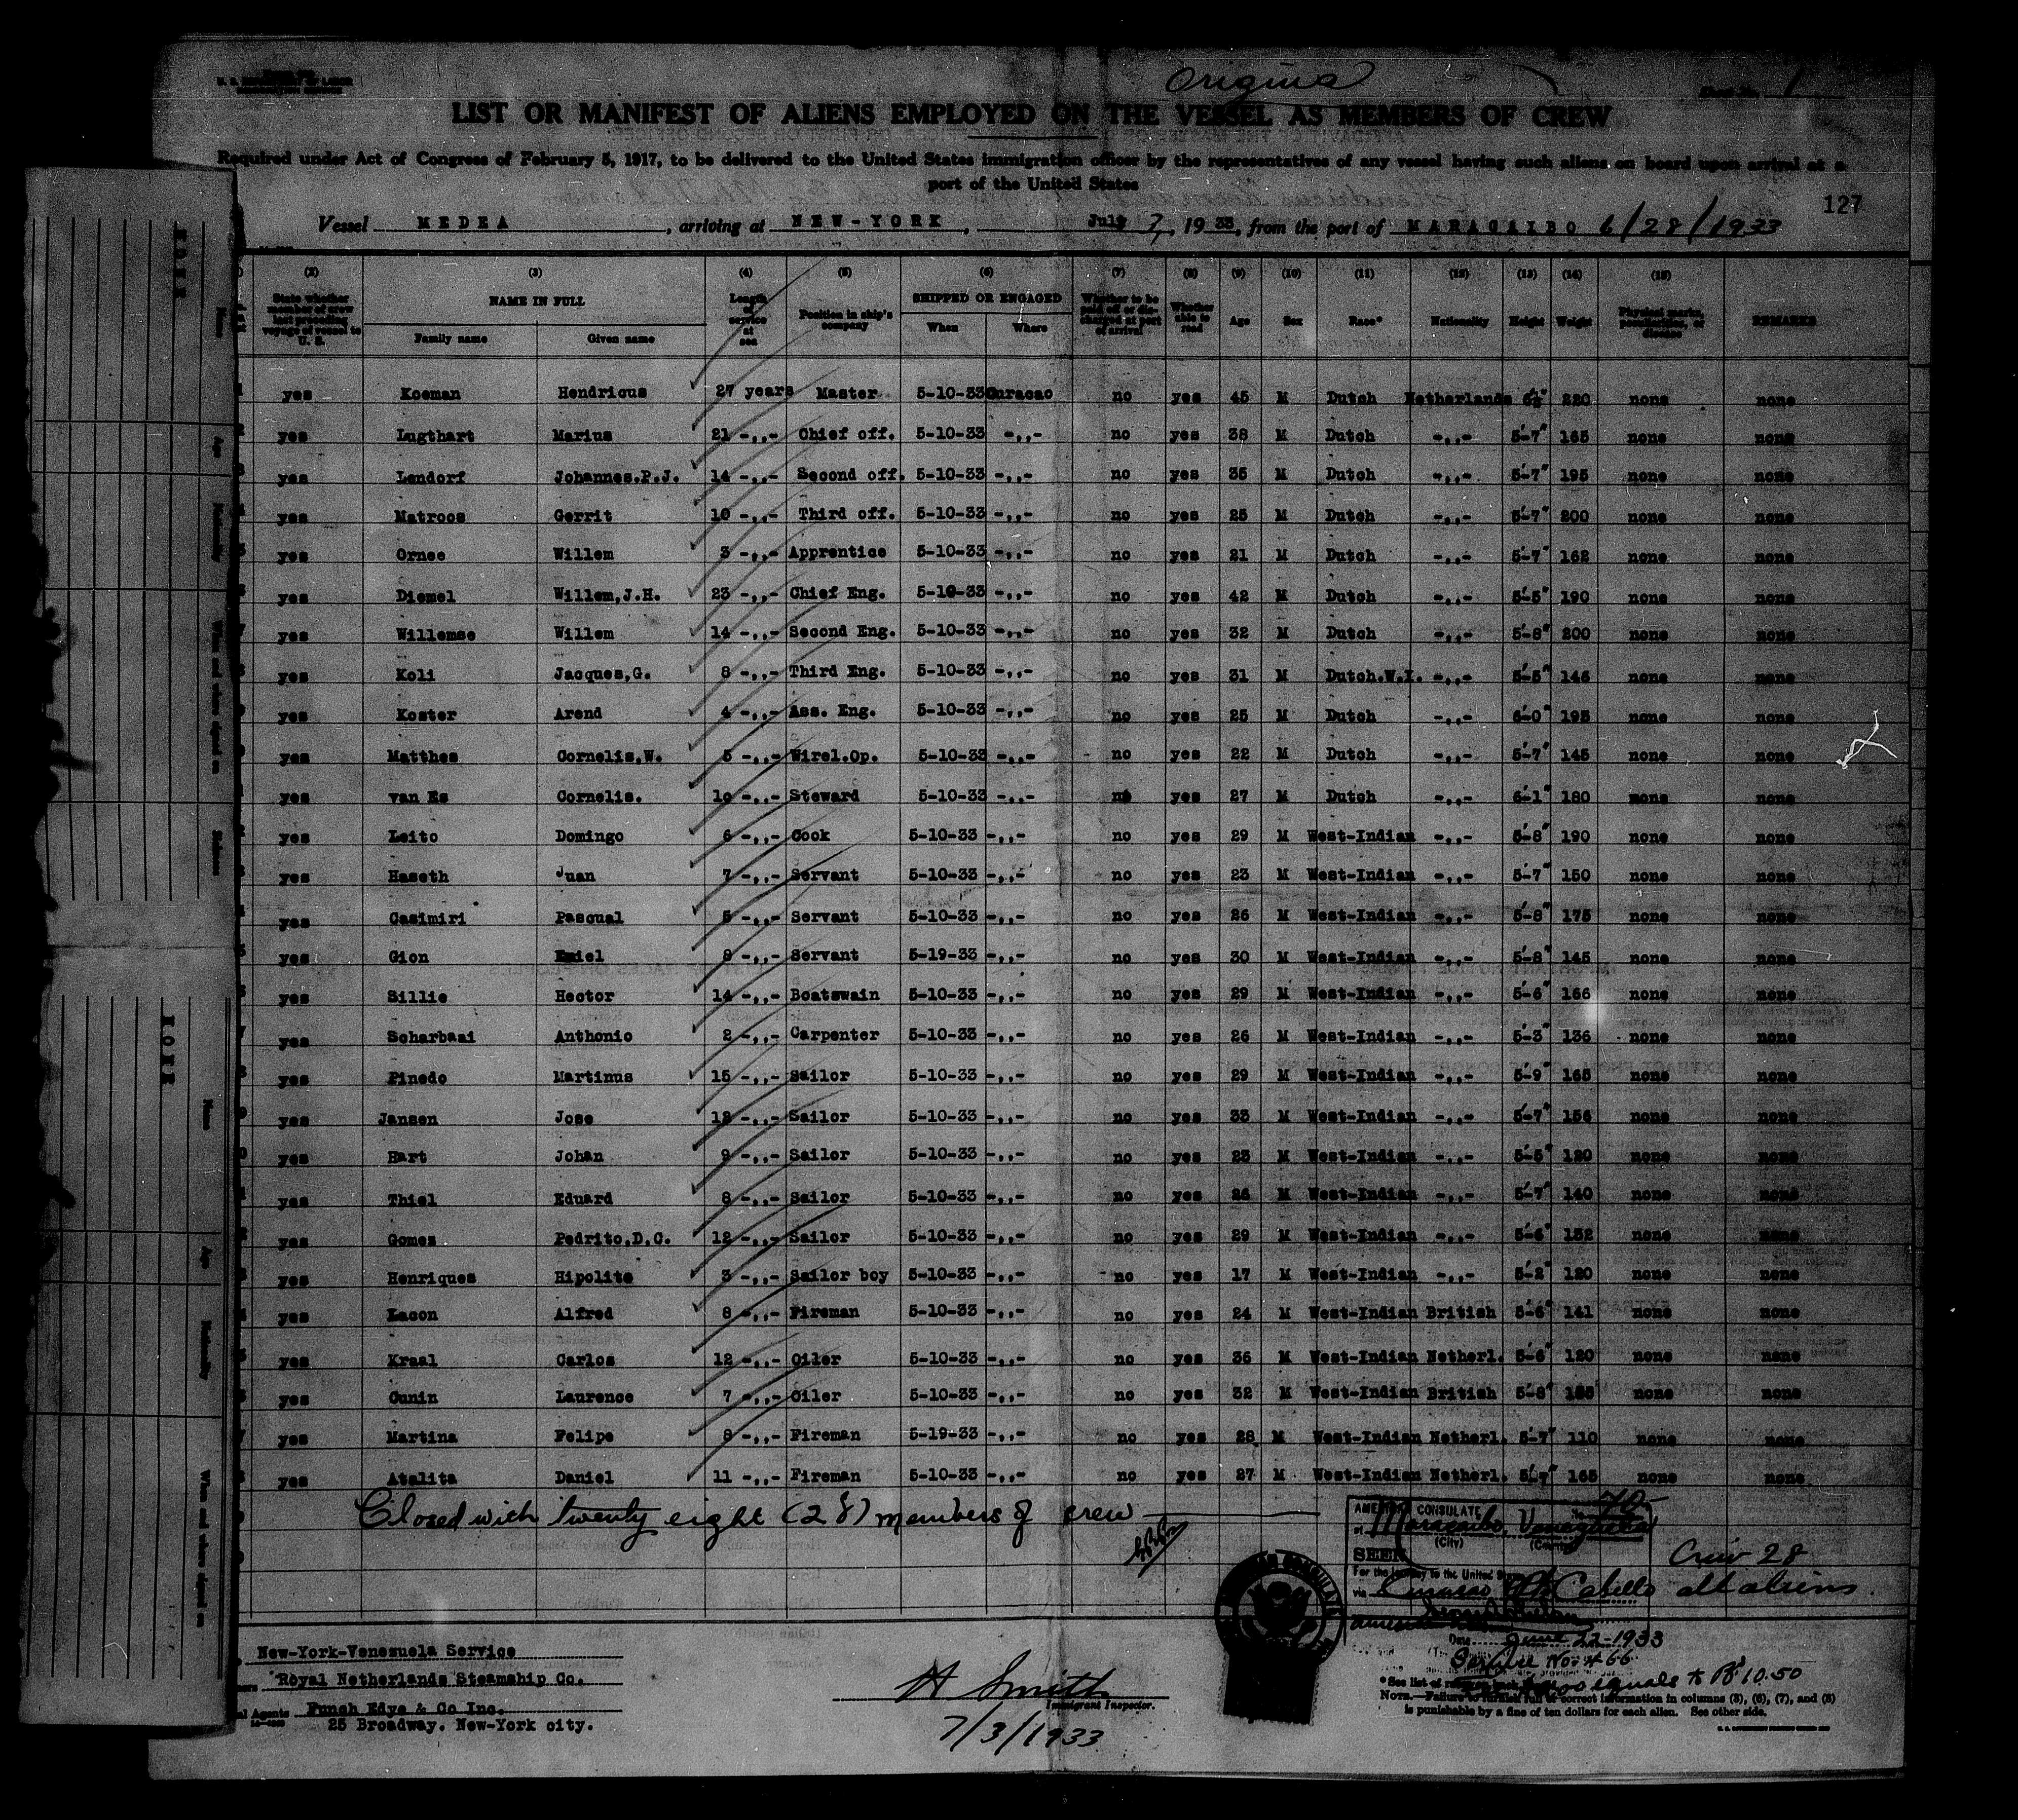 Original
LIST OR MANIFEST OF ALIENS EMPLOYED ON THE VESSEL AS MEMBERS OF CREW
Required under Act of Congress of February 5, 1917, to be delivered to the United States immigration officer by the representatives of any vessel having such aliens on board upon arrival at a
port of the United States
127
Vessel MEDEA, arriving at NEW-YORK, July 3, 1933, from the port of MARACAIBO 6/28/1933
(2) (3) (4) (5) (6) (7) (8) (9) (10) (11) (12) (13) (14) (15)
State whether member of crew last preceding voyage of vessel to U. S. NAME IN FULL Family name Given name Length of service at sea Position in ship's company SHIPPED OR ENGAGED When Where Whether to be paid off or discharged at port of arrival Whether able to read Age Sex Race* Nationality Height Weight Physical marks, peculiarities, or disease REMARKS
yes Koeman Hendricus 27 years Master 5-10-33 Curacao no yes 45 M Dutch Netherlands 220 none none
yes Lugthart Marius 21 -,,- Chief off. 5-10-33 -,,- no yes 38 M Dutch -,,- 5'-7" 165 none none
yes Lendorf Johannes.P.J. 14 -,,- Second off. 5-10-33 -,,- no yes 35 M Dutch -,,- 5'-7" 195 none none
yes Matroos Gerrit 10 -,,- Third off. 5-10-33 -,,- no yes 25 M Dutch -,,- 5'-7" 200 none none
yes Ornee Willem 3 -,,- Apprentice 5-10-33 -,,- no yes 21 M Dutch -,,- 5'-7" 162 none none
yes Diemel Willem,J.H. 23 -,,- Chief Eng. 5-10-33 -,,- no yes 42 M Dutch -,,- 5'-5" 190 none none
yes Willemse Willem 14 -,,- Second Eng. 5-10-33 -,,- no yes 32 M Dutch -,,- 5'-8" 200 none none
yes Koli Jacques,G. 8 -,,- Third Eng. 5-10-33 -,,- no yes 31 M Dutch.W.I. -,,- 5'-5" 146 none none
yes Koster Arend 4 -,,- Ass. Eng. 5-10-33 -,,- no yes 25 M Dutch -,,- 6'-0" 195 none none
yes Matthes Cornelis,W. 5 -,,- Wirel.Op. 5-10-33 -,,- no yes 22 M Dutch -,,- 5'-7" 145 none none
yes van Es Cornelis. 10 -,,- Steward 5-10-33 -,,- no yes 27 M Dutch -,,- 6'-1" 180 none none
yes Leito Domingo 6 -,,- Cook 5-10-33 -,,- no yes 29 M West-Indian -,,- 5'-8" 190 none none
yes Haseth Juan 7 -,,- Servant 5-10-33 -,,- no yes 23 M West-Indian -,,- 5'-7" 150 none none
yes Casimiri Pascual 5 -,,- Servant 5-10-33 -,,- no yes 26 M West-Indian -,,- 5'-8" 175 none none
yes Gion Emiel 8 -,,- Servant 5-19-33 -,,- no yes 30 M West-Indian -,,- 5'-8" 145 none none
yes Sillie Hector 14 -,,- Boatswain 5-10-33 -,,- no yes 29 M West-Indian -,,- 5'-6" 166 none none
yes Scharbaai Anthonio 2 -,,- Carpenter 5-10-33 -,,- no yes 26 M West-Indian -,,- 5'-3" 136 none none
yes Pinedo Martinus 15 -,,- Sailor 5-10-33 -,,- no yes 29 M West-Indian -,,- 5'-9" 165 none none
yes Jansen Jose 12 -,,- Sailor 5-10-33 -,,- no yes 33 M West-Indian -,,- 5'-7" 156 none none
yes Hart Johan 9 -,,- Sailor 5-10-33 -,,- no yes 23 M West-Indian -,,- 5'-5" 120 none none
yes Thiel Eduard 8 -,,- Sailor 5-10-33 -,,- no yes 26 M West-Indian -,,- 5'-7" 140 none none
yes Gomez Pedrito,D.C. 12 -,,- Sailor 5-10-33 -,,- no yes 29 M West-Indian -,,- 5'-6" 152 none none
yes Henriques Hipolito 3 -,,- Sailor boy 5-10-33 -,,- no yes 17 M West-Indian -,,- 5'-2" 120 none none
yes Lacon Alfred 8 -,,- Fireman 5-10-33 -,,- no yes 24 M West-Indian British 5'-6" 141 none none
yes Kraal Carlos 12 -,,- Oiler 5-10-33 -,,- no yes 36 M West-Indian Netherl. 5'-6" 120 none none
yes Cunin Laurence 7 -,,- Oiler 5-10-33 -,,- no yes 32 M West-Indian British 5'-8" none none
yes Martina Felipe 8 -,,- Fireman 5-19-33 -,,- no yes 28 M West-Indian Netherl. 5'-7" 110 none none
yes Atalita Daniel 11 -,,- Fireman 5-10-33 -,,- no yes 27 M West-Indian Netherl. 5'-7" 165 none none
Closed with twenty eight (28) members of crew
CONSULATE
at Maracaibo, Venezuela
(City) (Country)
SEEN
Crew 28
For the journey to the United States
via Curacao Pto Cabello all aliens
Date June 22-1933
Service No. 466
equals to 10.50
New-York-Venezuela Service
Royal Netherlands Steamship Co.
Funch Edye & Co Inc.
25 Broadway. New-York city.
H Smith
Immigrant Inspector.
7/3/1933
NOTE.—Failure to furnish full or correct information in columns (3), (6), (7), and (8)
is punishable by a fine of ten dollars for each alien. See other side.